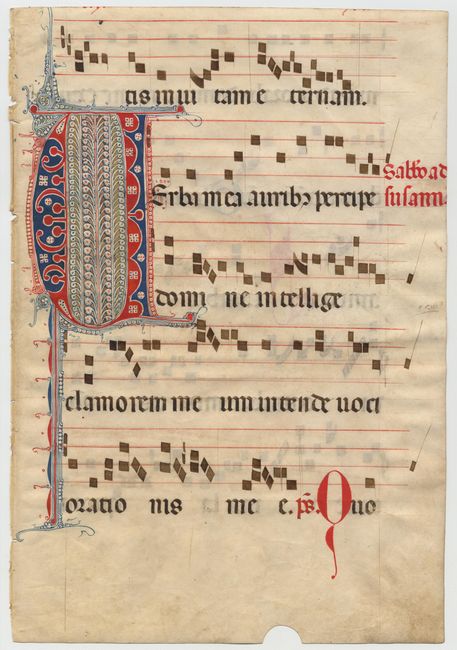 tis in ui tam e ternam.
VErba mea auribꝫ percipe
Sabbo ad
susann
domi ne intellige
clamorem me um intende uoci
oratio nis me e. ps. Quo